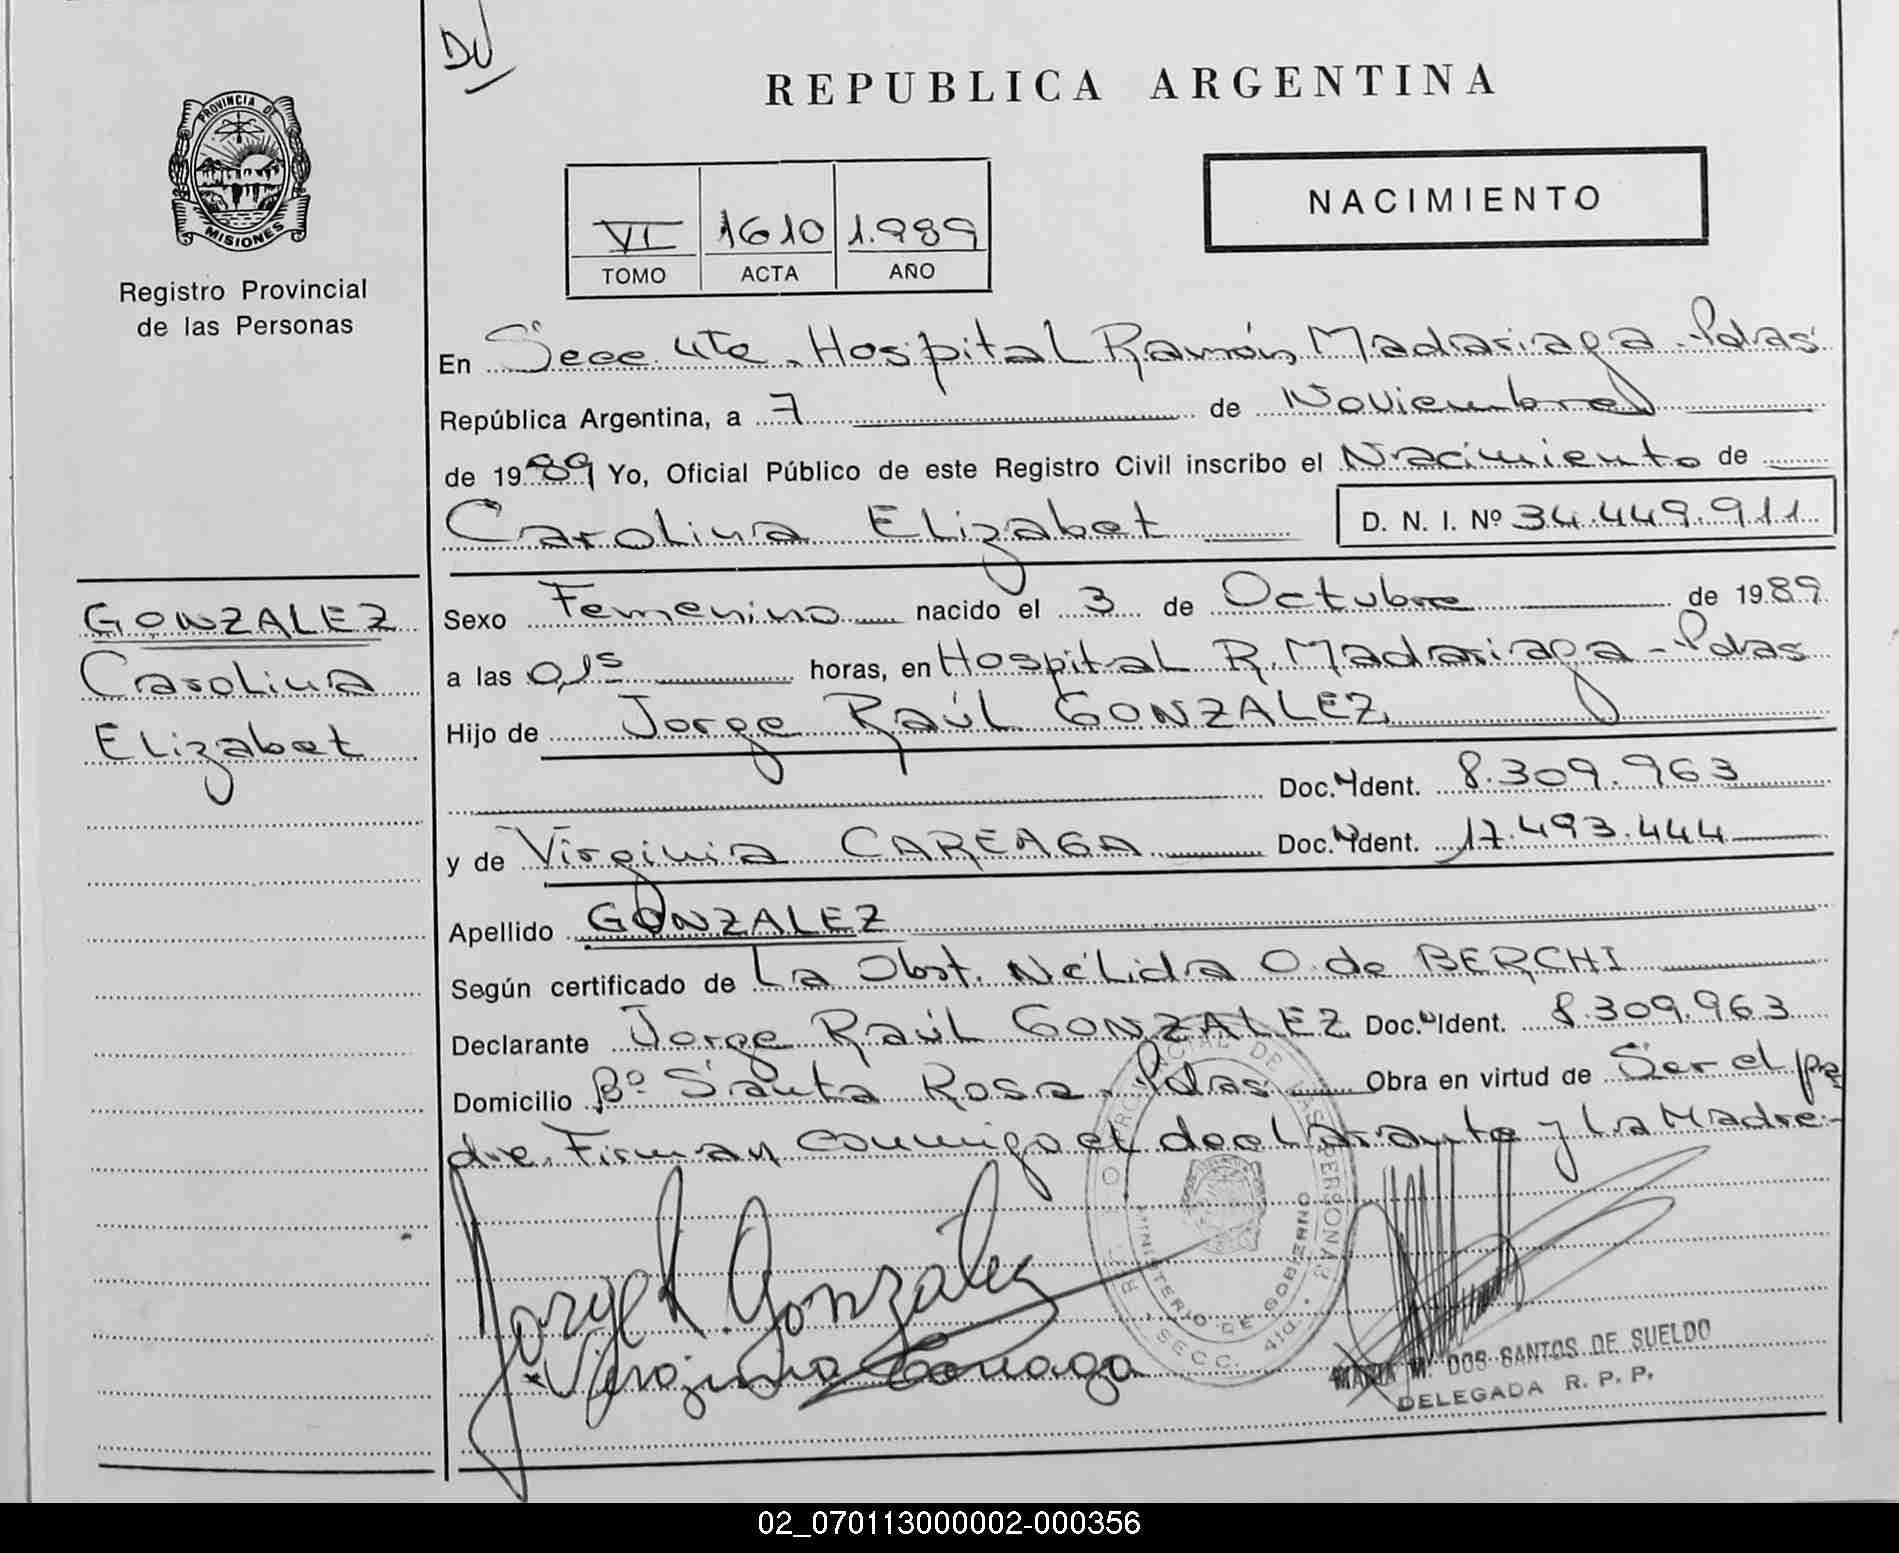 DU
REPUBLICA ARGENTINA
PROVINCIA DE
MISIONES
Registro Provincial
de las Personas
NACIMIENTO
VI 1610 1.989
TOMO ACTA AÑO
En Secc. 4ta. Hospital Ramón Madariaga - Pdas
República Argentina, a 7 de Noviembre
de 1989 Yo, Oficial Público de este Registro Civil inscribo el Nacimiento de
Carolina Elizabet D. N. I. Nº 34.449.911
GONZALEZ
Carolina
Elizabet
Sexo Femenino nacido el 3 de Octubre de 1989
a las 0,15 horas, en Hospital R. Madariaga - Pdas
Hijo de Jorge Raúl GONZALEZ
Doc. Ident. 8.309.963
y de Virginia CAREAGA Doc. Ident. 17.493.444
Apellido GONZALEZ
Según certificado de La Obst. Nélida O. de BERCHI
Declarante Jorge Raúl GONZALEZ Doc. Ident. 8.309.963
Domicilio Bº Santa Rosa - Pdas Obra en virtud de Ser el pa
dre. Firman conmigo el declarante y La Madre.-
Jorge R. Gonzalez
Virginia Careaga
REGISTRO PROVINCIAL DE LAS PERSONAS
MINISTERIO DE GOBIERNO
SECC. 4ta.
MARIA M. DOS SANTOS DE SUELDO
DELEGADA R. P. P.
02_070113000002-000356